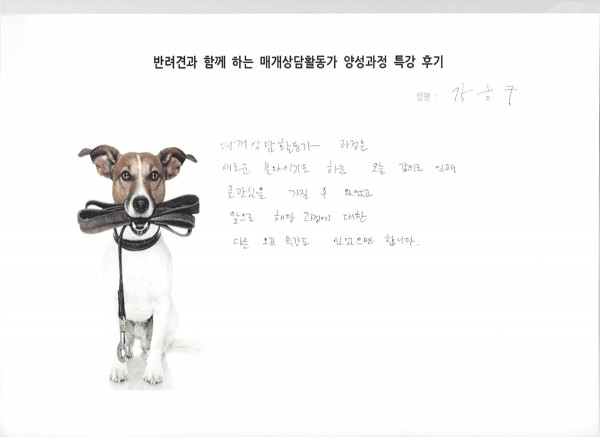 반려견과 함께 하는 매개상담활동가 양성과정 특강 후기
성명 : 강승구
매개상담활동가 과정은
새로운 분야이기도 하는 오늘 강의로 인해
큰관심을 가질 수 있었고
앞으로 해당 과정에 대한
다른 오프 특강도 있었으면 합니다.